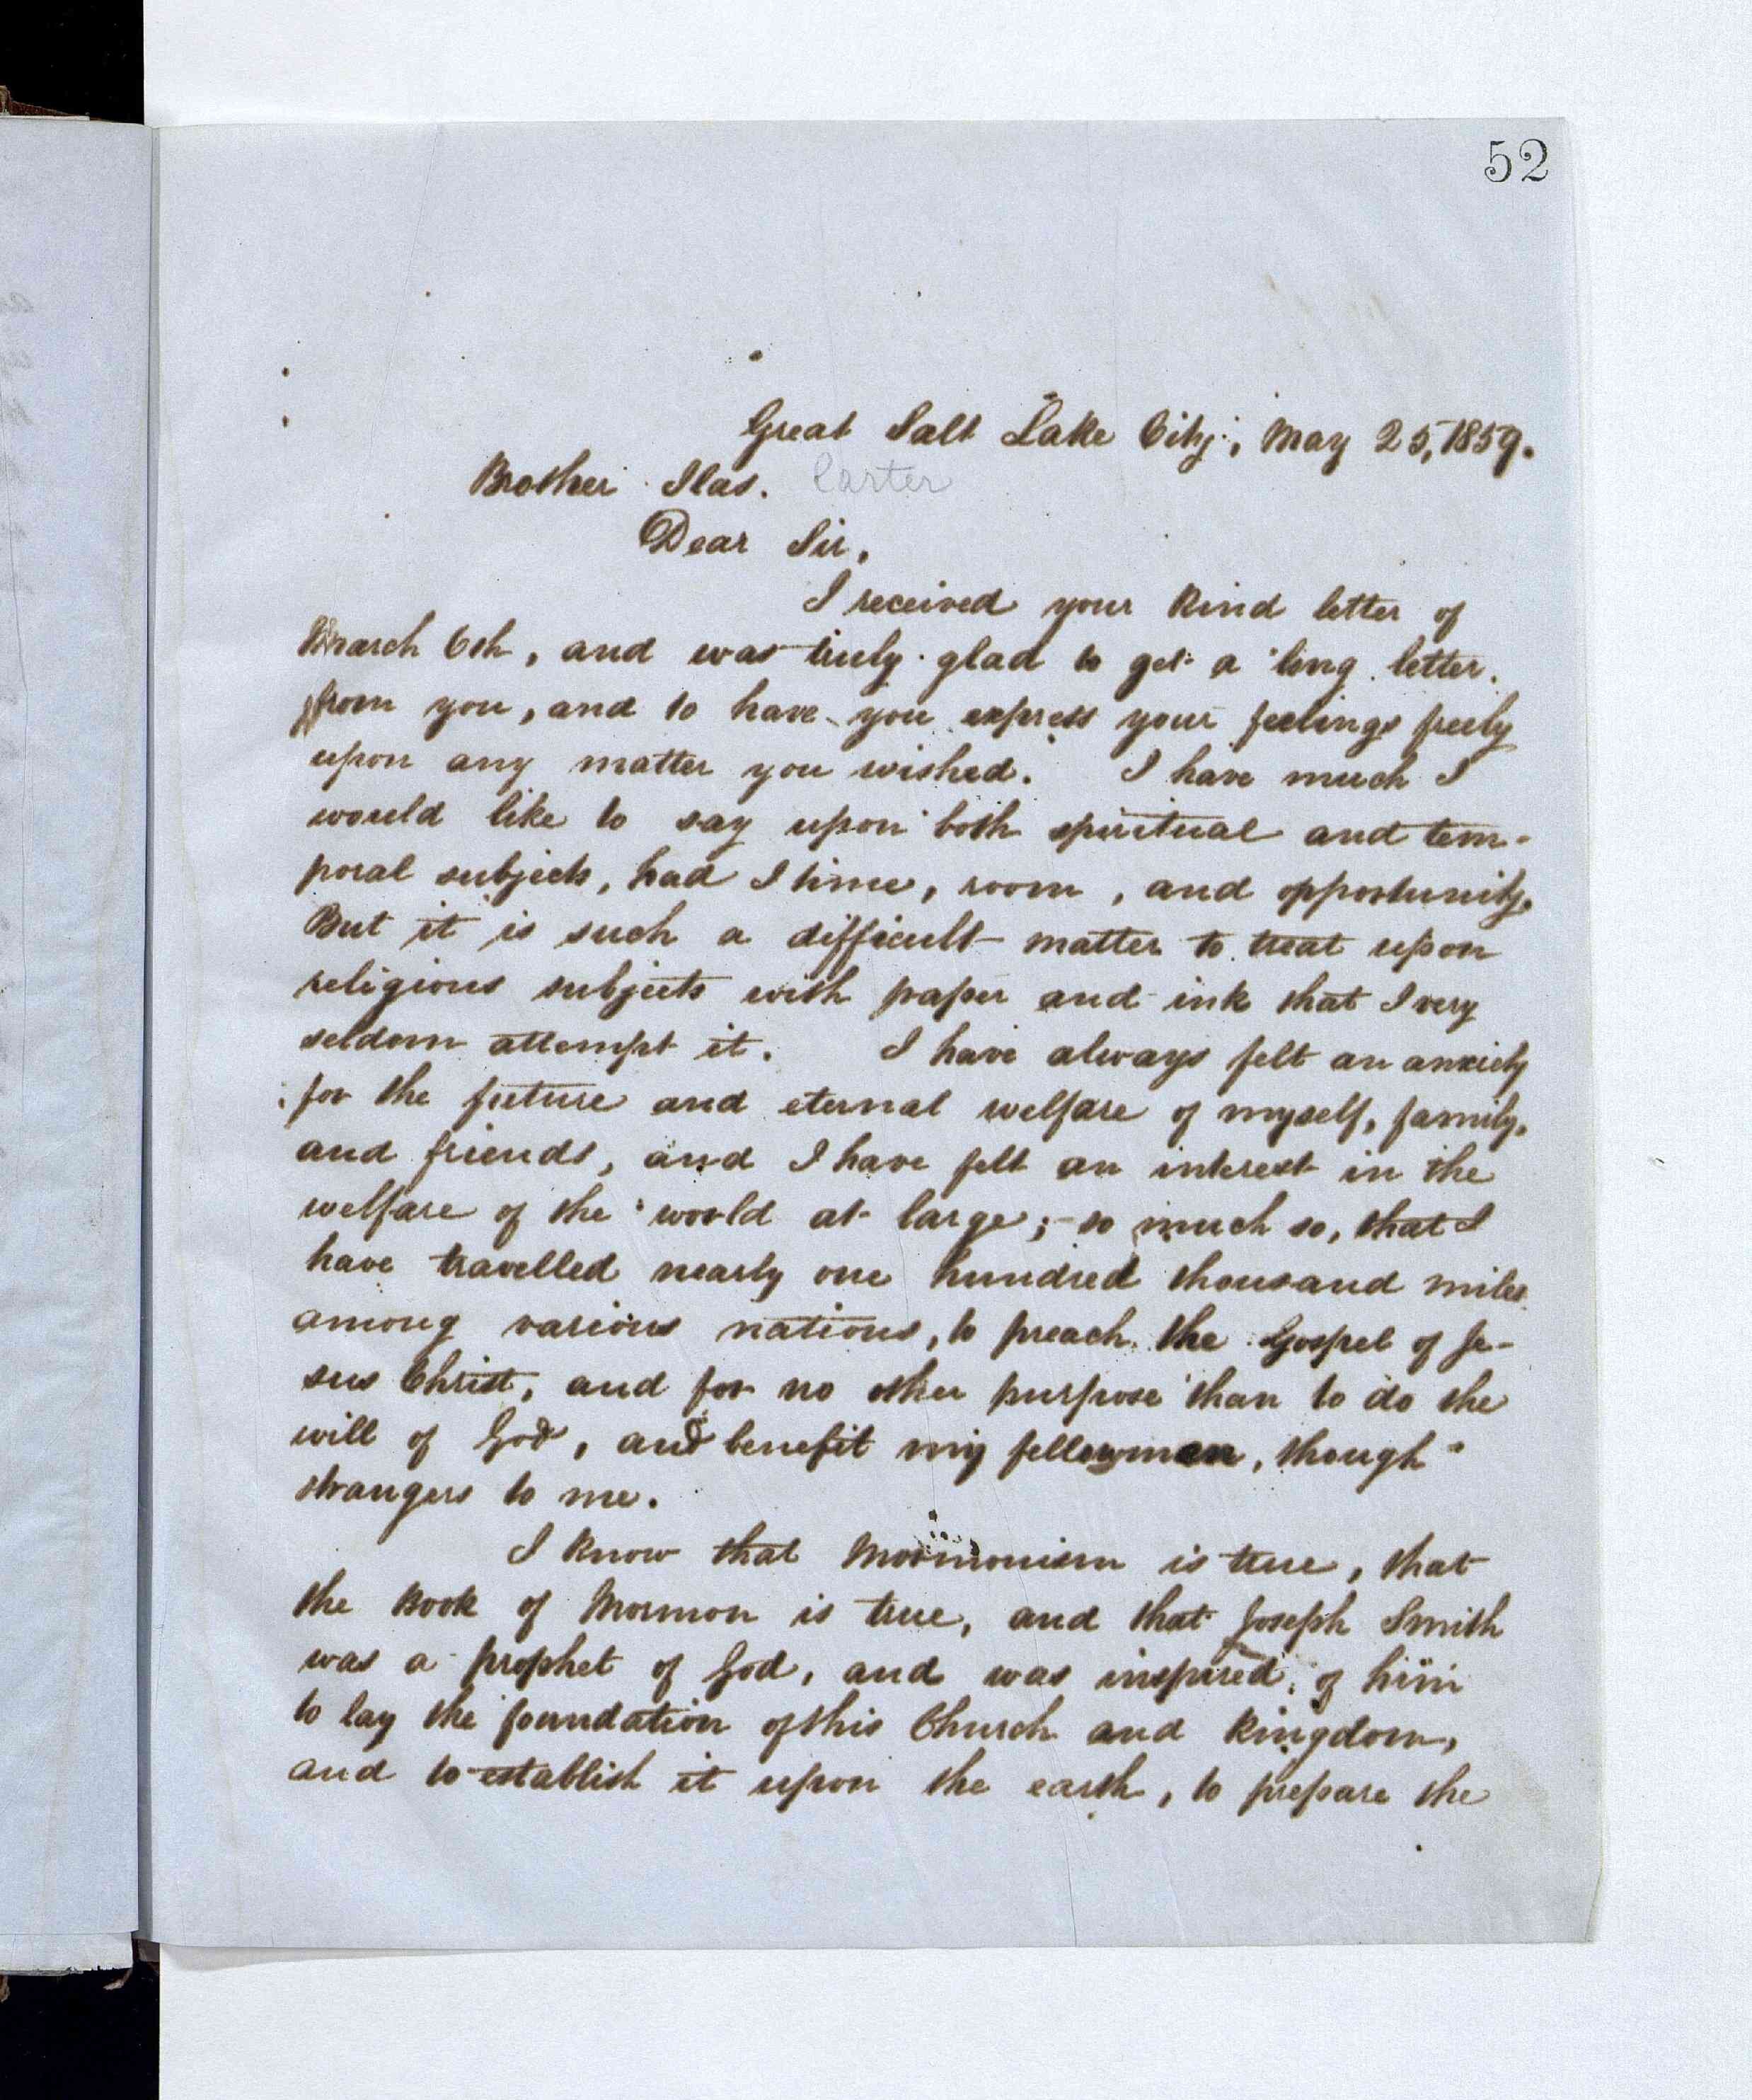 52
Great Salt Lake City, May 25, 1859.
Brother Ilas. Carter
Dear Sir,
I received your kind letter of
March 6th, and was truly glad to get a long letter
from you, and to have you express your feelings freely
upon any matter you wished. I have much I
would like to say upon both spiritual and tem-
poral subjects, had I time, room, and opportunity.
But it is such a difficult matter to treat upon
religious subjects with paper and ink that I very
seldom attempt it. I have always felt an anxiety
for the future and eternal welfare of myself, family,
and friends, and I have felt an interest in the
welfare of the world at large; so much so, that I
have travelled nearly one hundred thousand miles
among various nations, to preach the Gospel of Je-
sus Christ, and for no other purpose than to do the
will of God, and benefit my fellowmen, though
strangers to me.
I know that Mormonism is true, that
the Book of Mormon is true, and that Joseph Smith
was a prophet of God, and was inspired of him
to lay the foundation of this Church and Kingdom,
and to establish it upon the earth, to prepare the